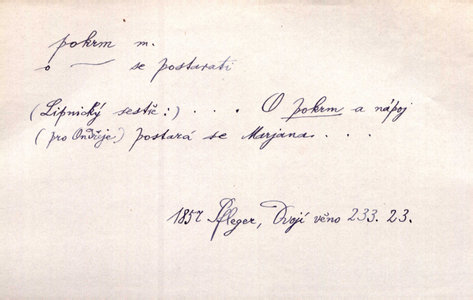 pokrm m.
o — se postarati
(Lipnický sestře:) . . . O pokrm a nápoj
(pro Ondřeje) postará se Marjana . . . .
1857 Pfleger, Dvojí věno 233. 23.